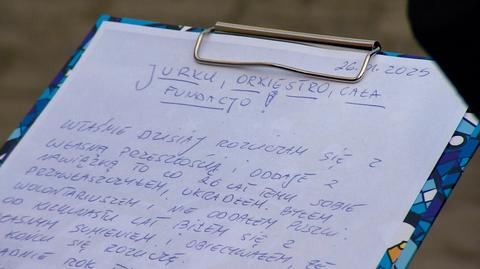 26.01.2025
JURKU, ORKIESTRO, CAŁA
FUNDACJO!
WŁAŚNIE DZISIAJ ROZLICZAM SIĘ Z
WŁASNĄ PRZESZŁOŚCIĄ I ODDAJĘ Z
NAWIĄZKĄ TO CO 26 LAT TEMU SOBIE
PRZYWŁASZCZYŁEM, UKRADŁEM. BYŁEM
WOLONTARIUSZEM I NIE ODDAŁEM PUSZKI.
OD KILKUNASTU LAT BIJĘM SIĘ Z
WŁASNYM SUMIENIEM I OBIECYWAŁEM, ŻE
KOŃCU SIĘ ROZLICZĘ.
ROK